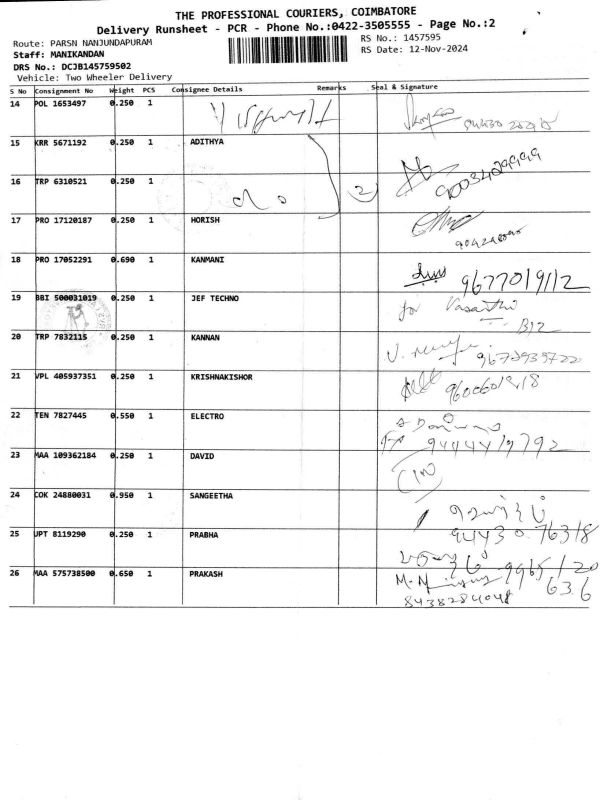 THE PROFESSIONAL COURIERS, COIMBATORE
Delivery Runsheet - PCR - Phone No.:0422-3505555 - Page No.:2
Route: PARSN NANJUNDAPURAM
RS No.: 1457595
Staff: MANIKANDAN
RS Date: 12-Nov-2024
DRS No.: DCJB145759502
Vehicle: Two Wheeler Delivery
S No Consignment No Weight PCS Consignee Details Remarks Seal & Signature
14 POL 1653497 0.250 1
15 KRR 5671192 0.250 1 ADITHYA
9003429999
16 TRP 6310521 0.250 1 2
17 PRO 17120187 0.250 1 HORISH
18 PRO 17052291 0.690 1 KANMANI
9677019112
19 BBI 500031019 0.250 1 JEF TECHNO for Vasanthi
B12
20 TRP 7832115 0.250 1 KANNAN
21 VPL 405937351 0.250 1 KRISHNAKISHOR
22 TEN 7827445 0.550 1 ELECTRO
9444419792
23 MAA 109362184 0.250 1 DAVID
24 COK 24880031 0.950 1 SANGEETHA
25 JPT 8119290 0.250 1 PRABHA 94430 76318
26 MAA 575738500 0.650 1 PRAKASH 9965/20
636
8438284048